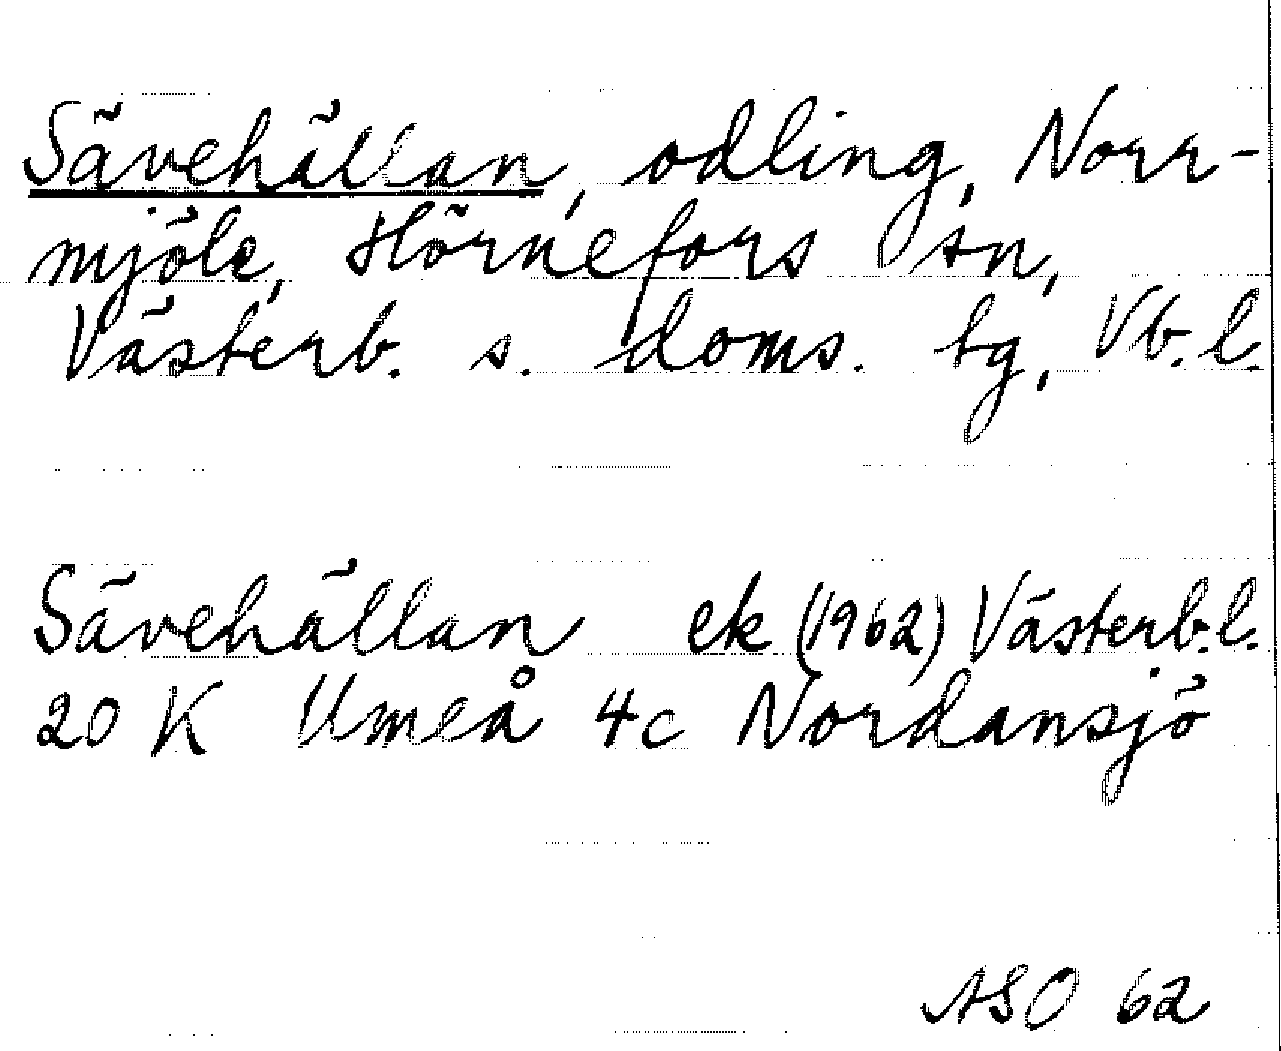 Sävehällan, odling, Norr-
mjöle, Hörnefors sn,
Västerb. s. doms. tg, Vb. l.
Sävehällan ek (1962) Västerb. l.
20 K Umeå 4c Nordansjö
ASO 62